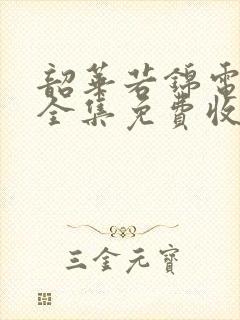 韶華若錦電
全集免費收
三金元寶